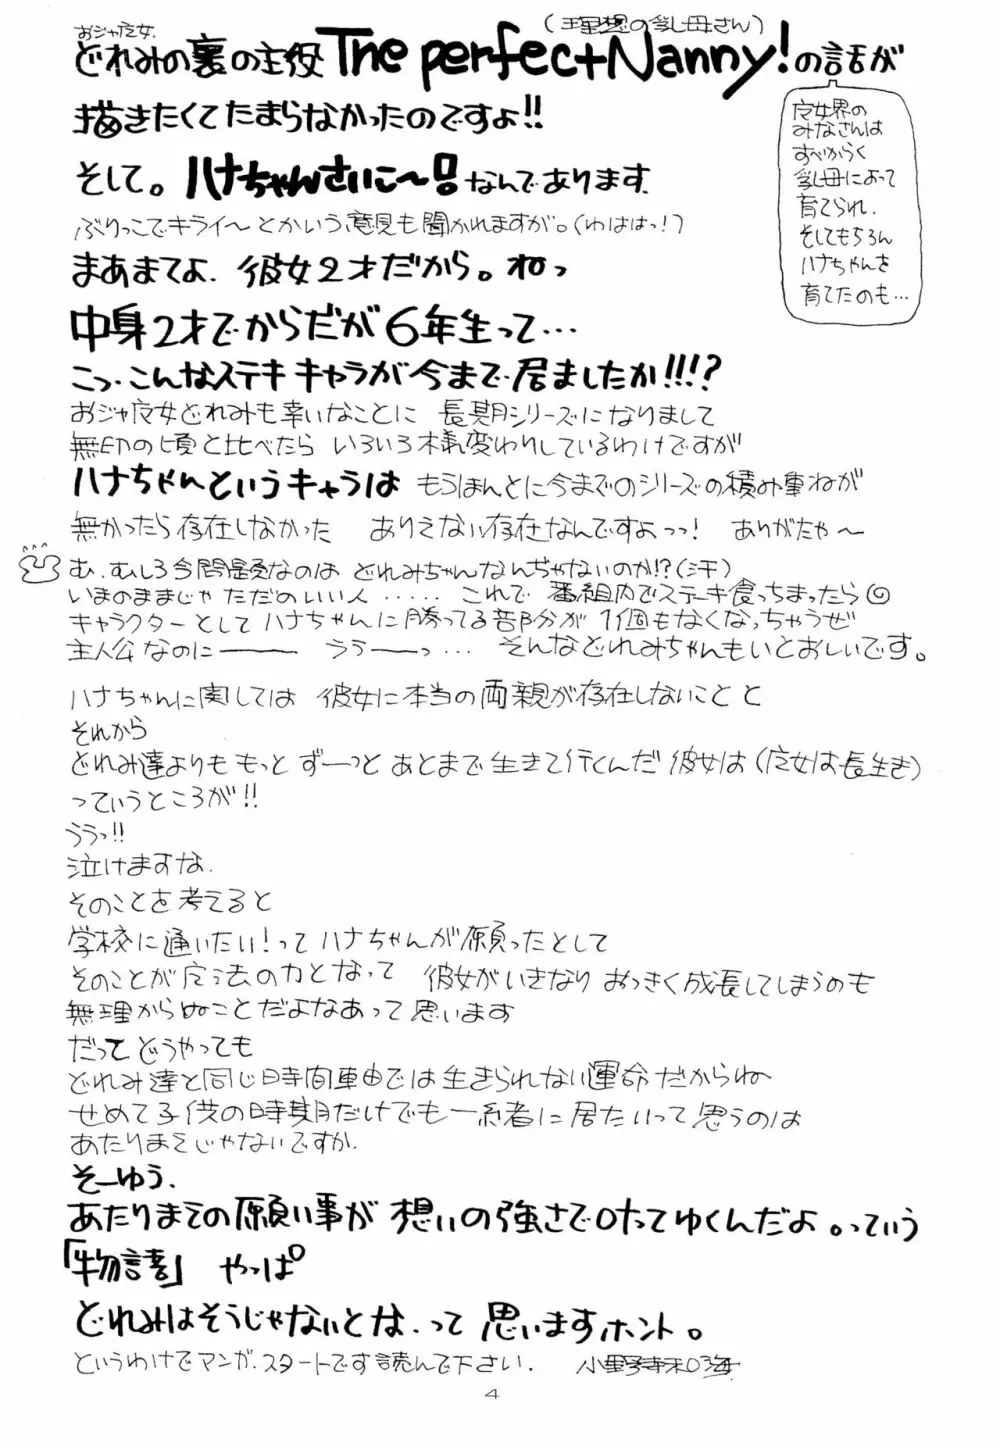 (理想の乳母さん)
おジャ魔女
どれみの裏の主役The perfect Nanny!の話が
描きたくてたまらなかったのですよ!!
そして。ハナちゃんさいこ〜!!なんであります.
ぶりっこでキライ〜とかいう意見も聞かれますが。(わははっ!)
まあまてよ.彼女2才だから。ねっ
中身2才でからだが6年生って…
こっ.こんなステキキャラが今まで居ましたか!!!?
魔女界の
みなさんは
すべからく
乳母によって
育てられ.
そしてもちろん
ハナちゃんを
育てたのも…
おジャ魔女どれみも幸いなことに 長期シリーズになりまして
無印の頃と比べたら いろいろ様変わりしているわけですが
ハナちゃんというキャラは もうほんとに今までのシリーズの積み重ねが
無かったら存在しなかった ありえない存在なんですよっっ! ありがたや〜
む.むしろ今問題なのは どれみちゃんなんぢゃないのか!?(汗)
いまのままじゃ ただのいい人 …… これで 番組内でステーキ食っちまったら
キャラクターとしてハナちゃんに勝ってる部分が 1個もなくなっちゃうぜ
主人公なのに─── ううーーっ… そんなどれみちゃんもいとおしいです。
ハナちゃんに関しては 彼女に本当の両親が存在しないことと
それから
どれみ達よりももっと ずーっと あとまで生きて行くんだ彼女は(魔女は長生き)
っていうところが!!
ううっ!!
泣けますな.
そのことを考えると
学校に通いたい!ってハナちゃんが願ったとして
そのことが魔法の力となって 彼女がいきなりおっきく成長してしまうのも
無理からぬことだよなあって思います
だってどうやっても
どれみ達と同じ時間軸では生きられない運命だからね
せめて子供の時期だけでも一緒に居たいって思うのは
あたりまえじゃないですか.
そーゆう.
あたりまえの願い事が 想いの強さで叶ってゆくんだよ。っていう
「物語」 やっぱ
どれみはそうじゃないとな.って 思いますホント。
というわけでマンガ.スタートです読んで下さい. 小野寺和海
4